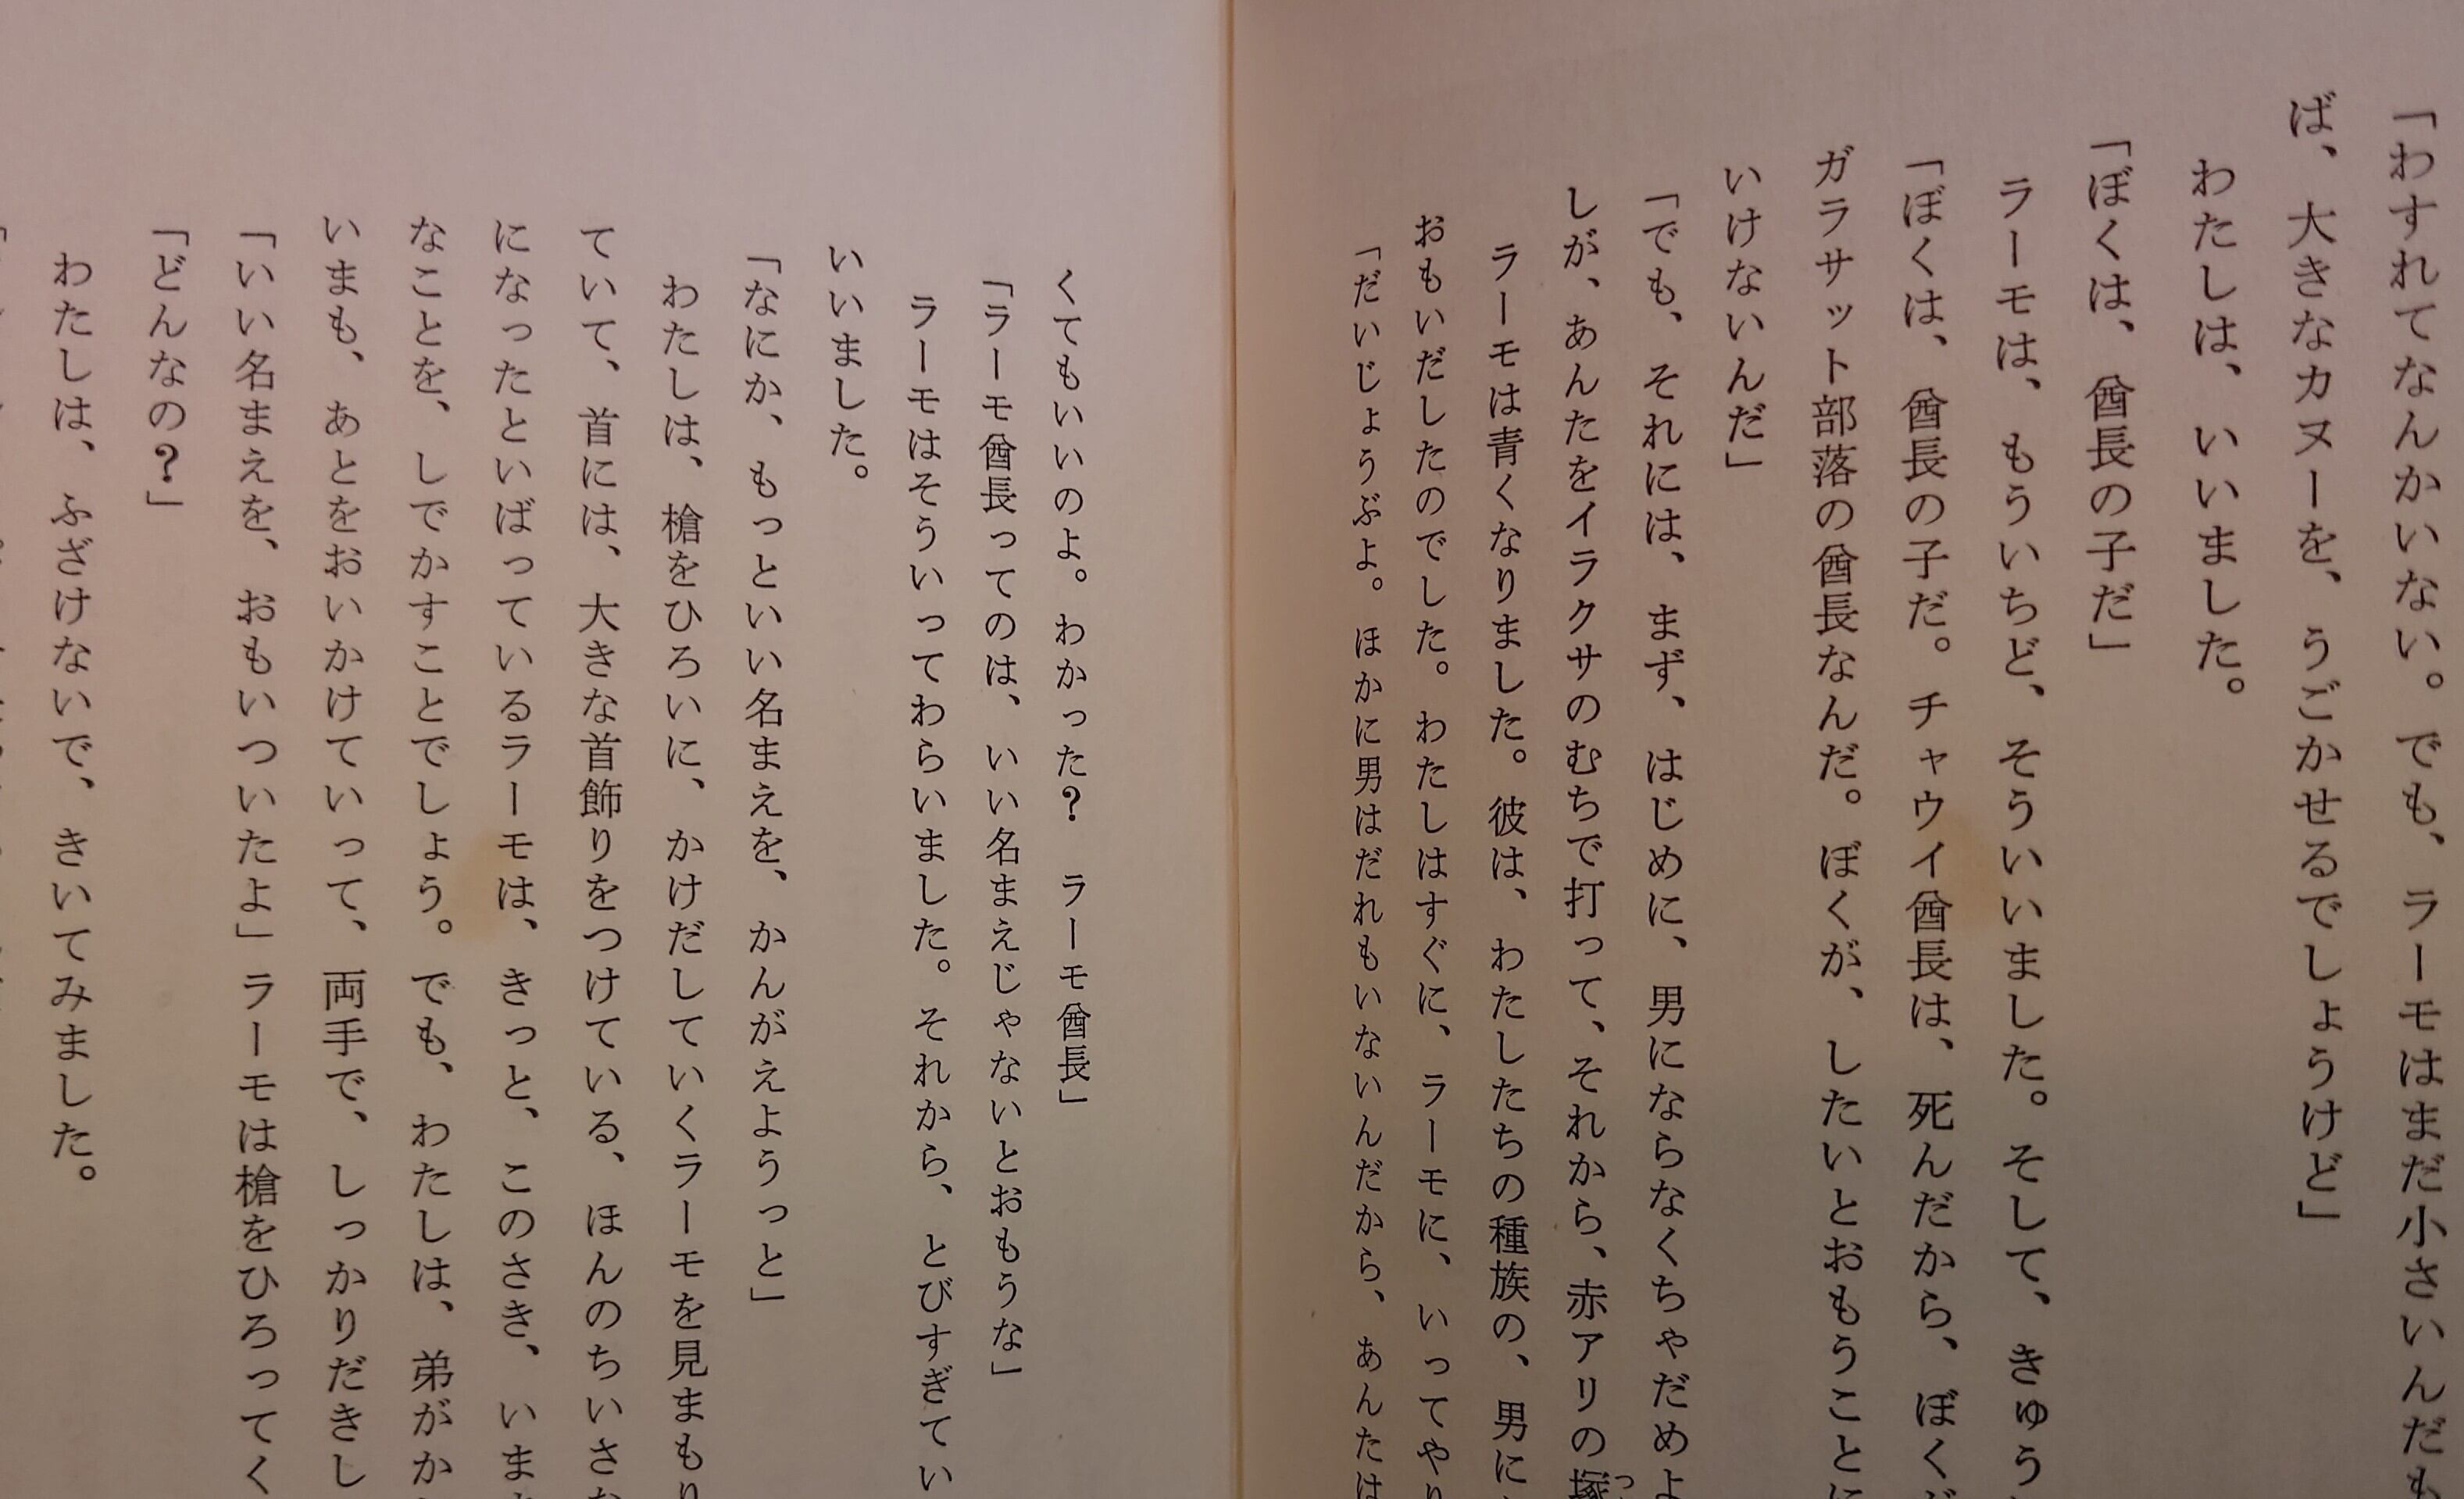 「わすれてなんかいない。でも、ラーモはまだ小さいんだも
ば、大きなカヌーを、うごかせるでしょうけど」
わたしは、いいました。
「ぼくは、酋長の子だ」
ラーモは、もういちど、そういいました。そして、きゅう
「ぼくは、酋長の子だ。チャウイ酋長は、死んだから、ぼく
ガラサット部落の酋長なんだ。ぼくが、したいとおもうことに
いけないんだ」
「でも、それには、まず、はじめに、男にならなくちゃだめよ
しが、あんたをイラクサのむちで打って、それから、赤アリの塚
ラーモは青くなりました。彼は、わたしたちの種族の、男に
おもいだしたのでした。わたしはすぐに、ラーモに、いってやり
「だいじょうぶよ。ほかに男はだれもいないんだから、あんたは
くてもいいのよ。わかった? ラーモ酋長」
「ラーモ酋長ってのは、いい名まえじゃないとおもうな」
ラーモはそういってわらいました。それから、とびすぎてい
いいました。
「なにか、もっといい名まえを、かんがえようっと」
わたしは、槍をひろいに、かけだしていくラーモを見まもり
ていて、首には、大きな首飾りをつけている、ほんのちいさな
になったといばっているラーモは、きっと、このさき、いま
なことを、しでかすことでしょう。でも、わたしは、弟がか
いまも、あとをおいかけていって、両手で、しっかりだきし
「いい名まえを、おもいついたよ」ラーモは槍をひろってく
「どんなの?」
わたしは、ふざけないで、きいてみました。